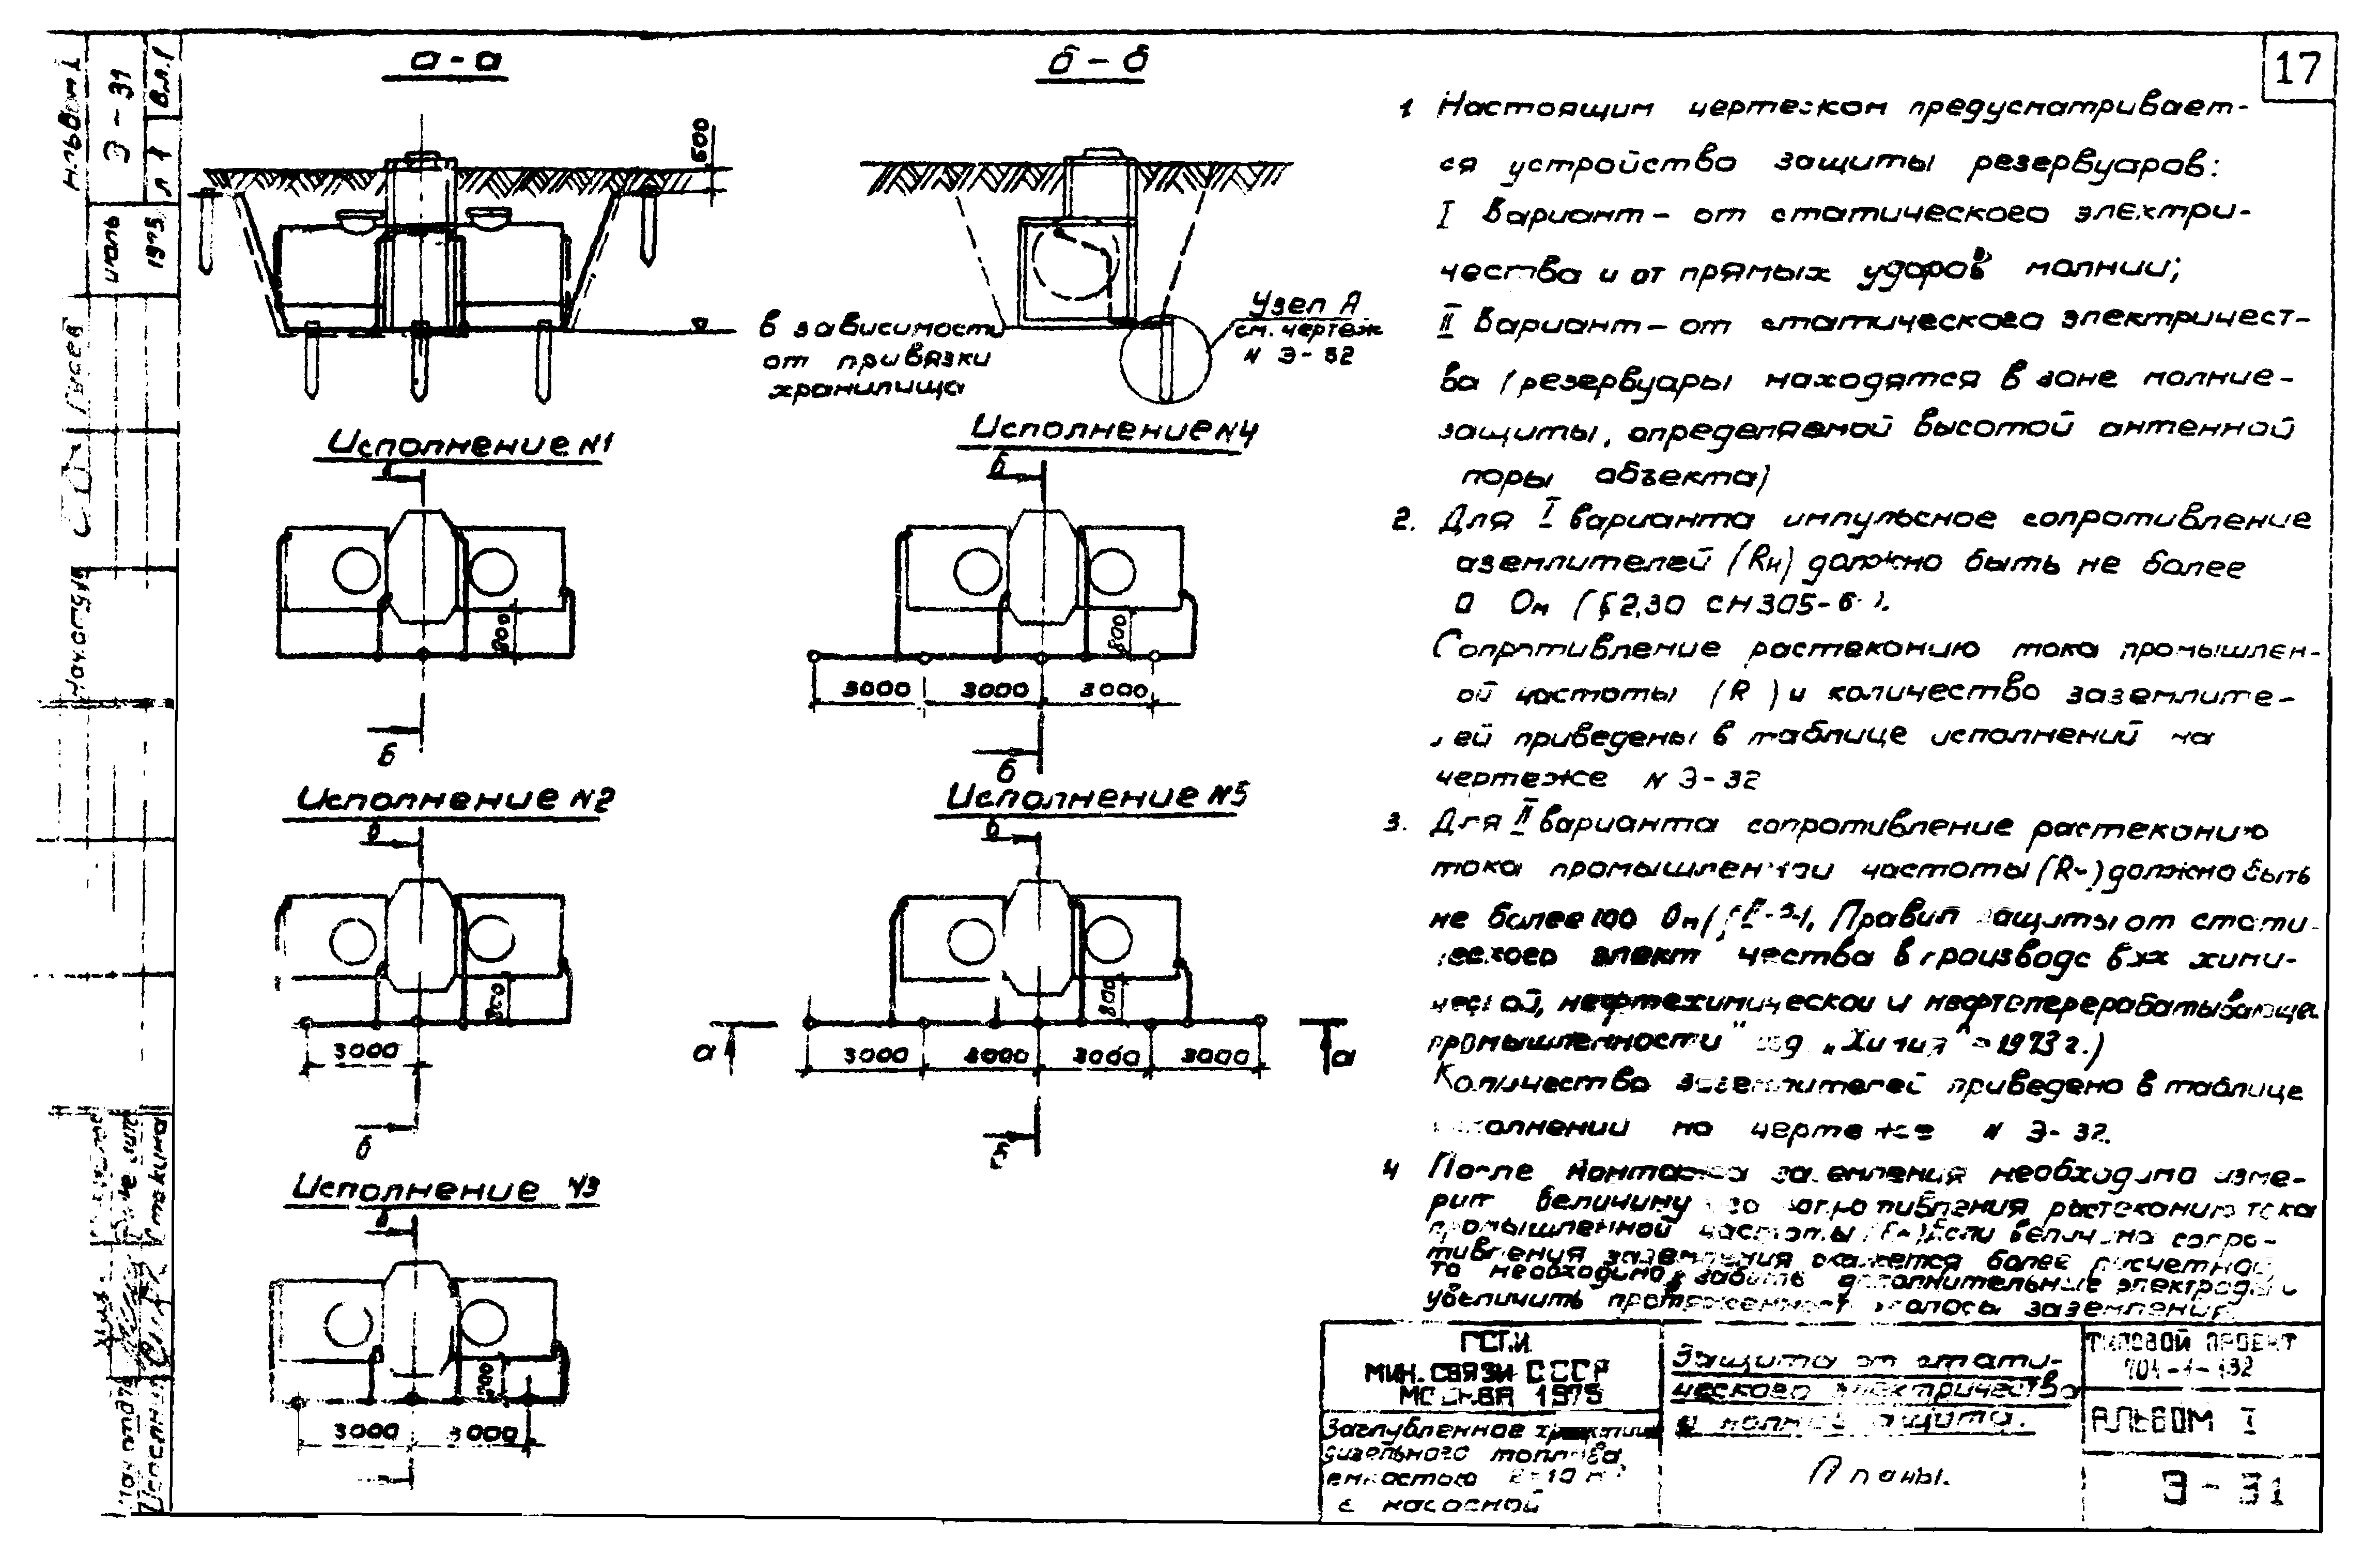 17
Н.льбом I
Э - 31
Вл.1
л 1
июль
1975
Гусев
Нач.отдела
а - а
600
б - б
в зависимости
от привязки
хранилища
Узел А
см. чертеж
N Э-32
Исполнение N1
б
800
б
Исполнение N4
б
800
3000 3000 3000
б
Исполнение N2
б
800
3000
б
Исполнение N5
б
800
а
3000 3000 3000 3000
а
Исполнение N3
б
800
3000 3000
1 Настоящим чертежом предусматривает-
ся устройство защиты резервуаров:
I вариант - от статического электри-
чества и от прямых ударов молнии;
II вариант - от статического электричест-
ва (резервуары находятся в зоне молние-
защиты, определяемой высотой антенной
поры объекта)
2. Для I варианта импульсное сопротивление
аземлителей (Rи) должно быть не более
0 Ом (§2,30 СН305-6 ).
Сопротивление растеканию тока промышлен-
ой частоты (R ) и количество заземлите-
лей приведены в таблице исполнений на
чертеже N Э-32
3. Для II варианта сопротивление растеканию
тока промышленной частоты (R~) должно быть
не более 100 Ом ( Правил защиты от стати-
ческого элект чества в производствах хими-
ческой, нефтехимической и нефтеперерабатывающе
промышленности" изд „Химия" - 1973 г.)
Количество заземлителей приведено в таблице
исполнений на чертеже N Э-32.
4 После монтажа заземления необходимо изме-
рит величину его сопротивления растеканию тока
промышленной частоты (R~) Если величина сопро-
тивления заземления окажется более расчетной
то необходимо забить дополнительные электроды и
увеличить протяженность полосы заземления
ГСПИ
МИН. СВЯЗИ СССР
МОСКВА 1975
Заглубленное хранилище
дизельного топлива
емкостью 2×10 м³
с насосной
Защита от стати-
ческого электричества
и молниезащита.
Планы.
ТИПОВОЙ ПРОЕКТ
704-1-132
АЛЬБОМ I
Э - 31